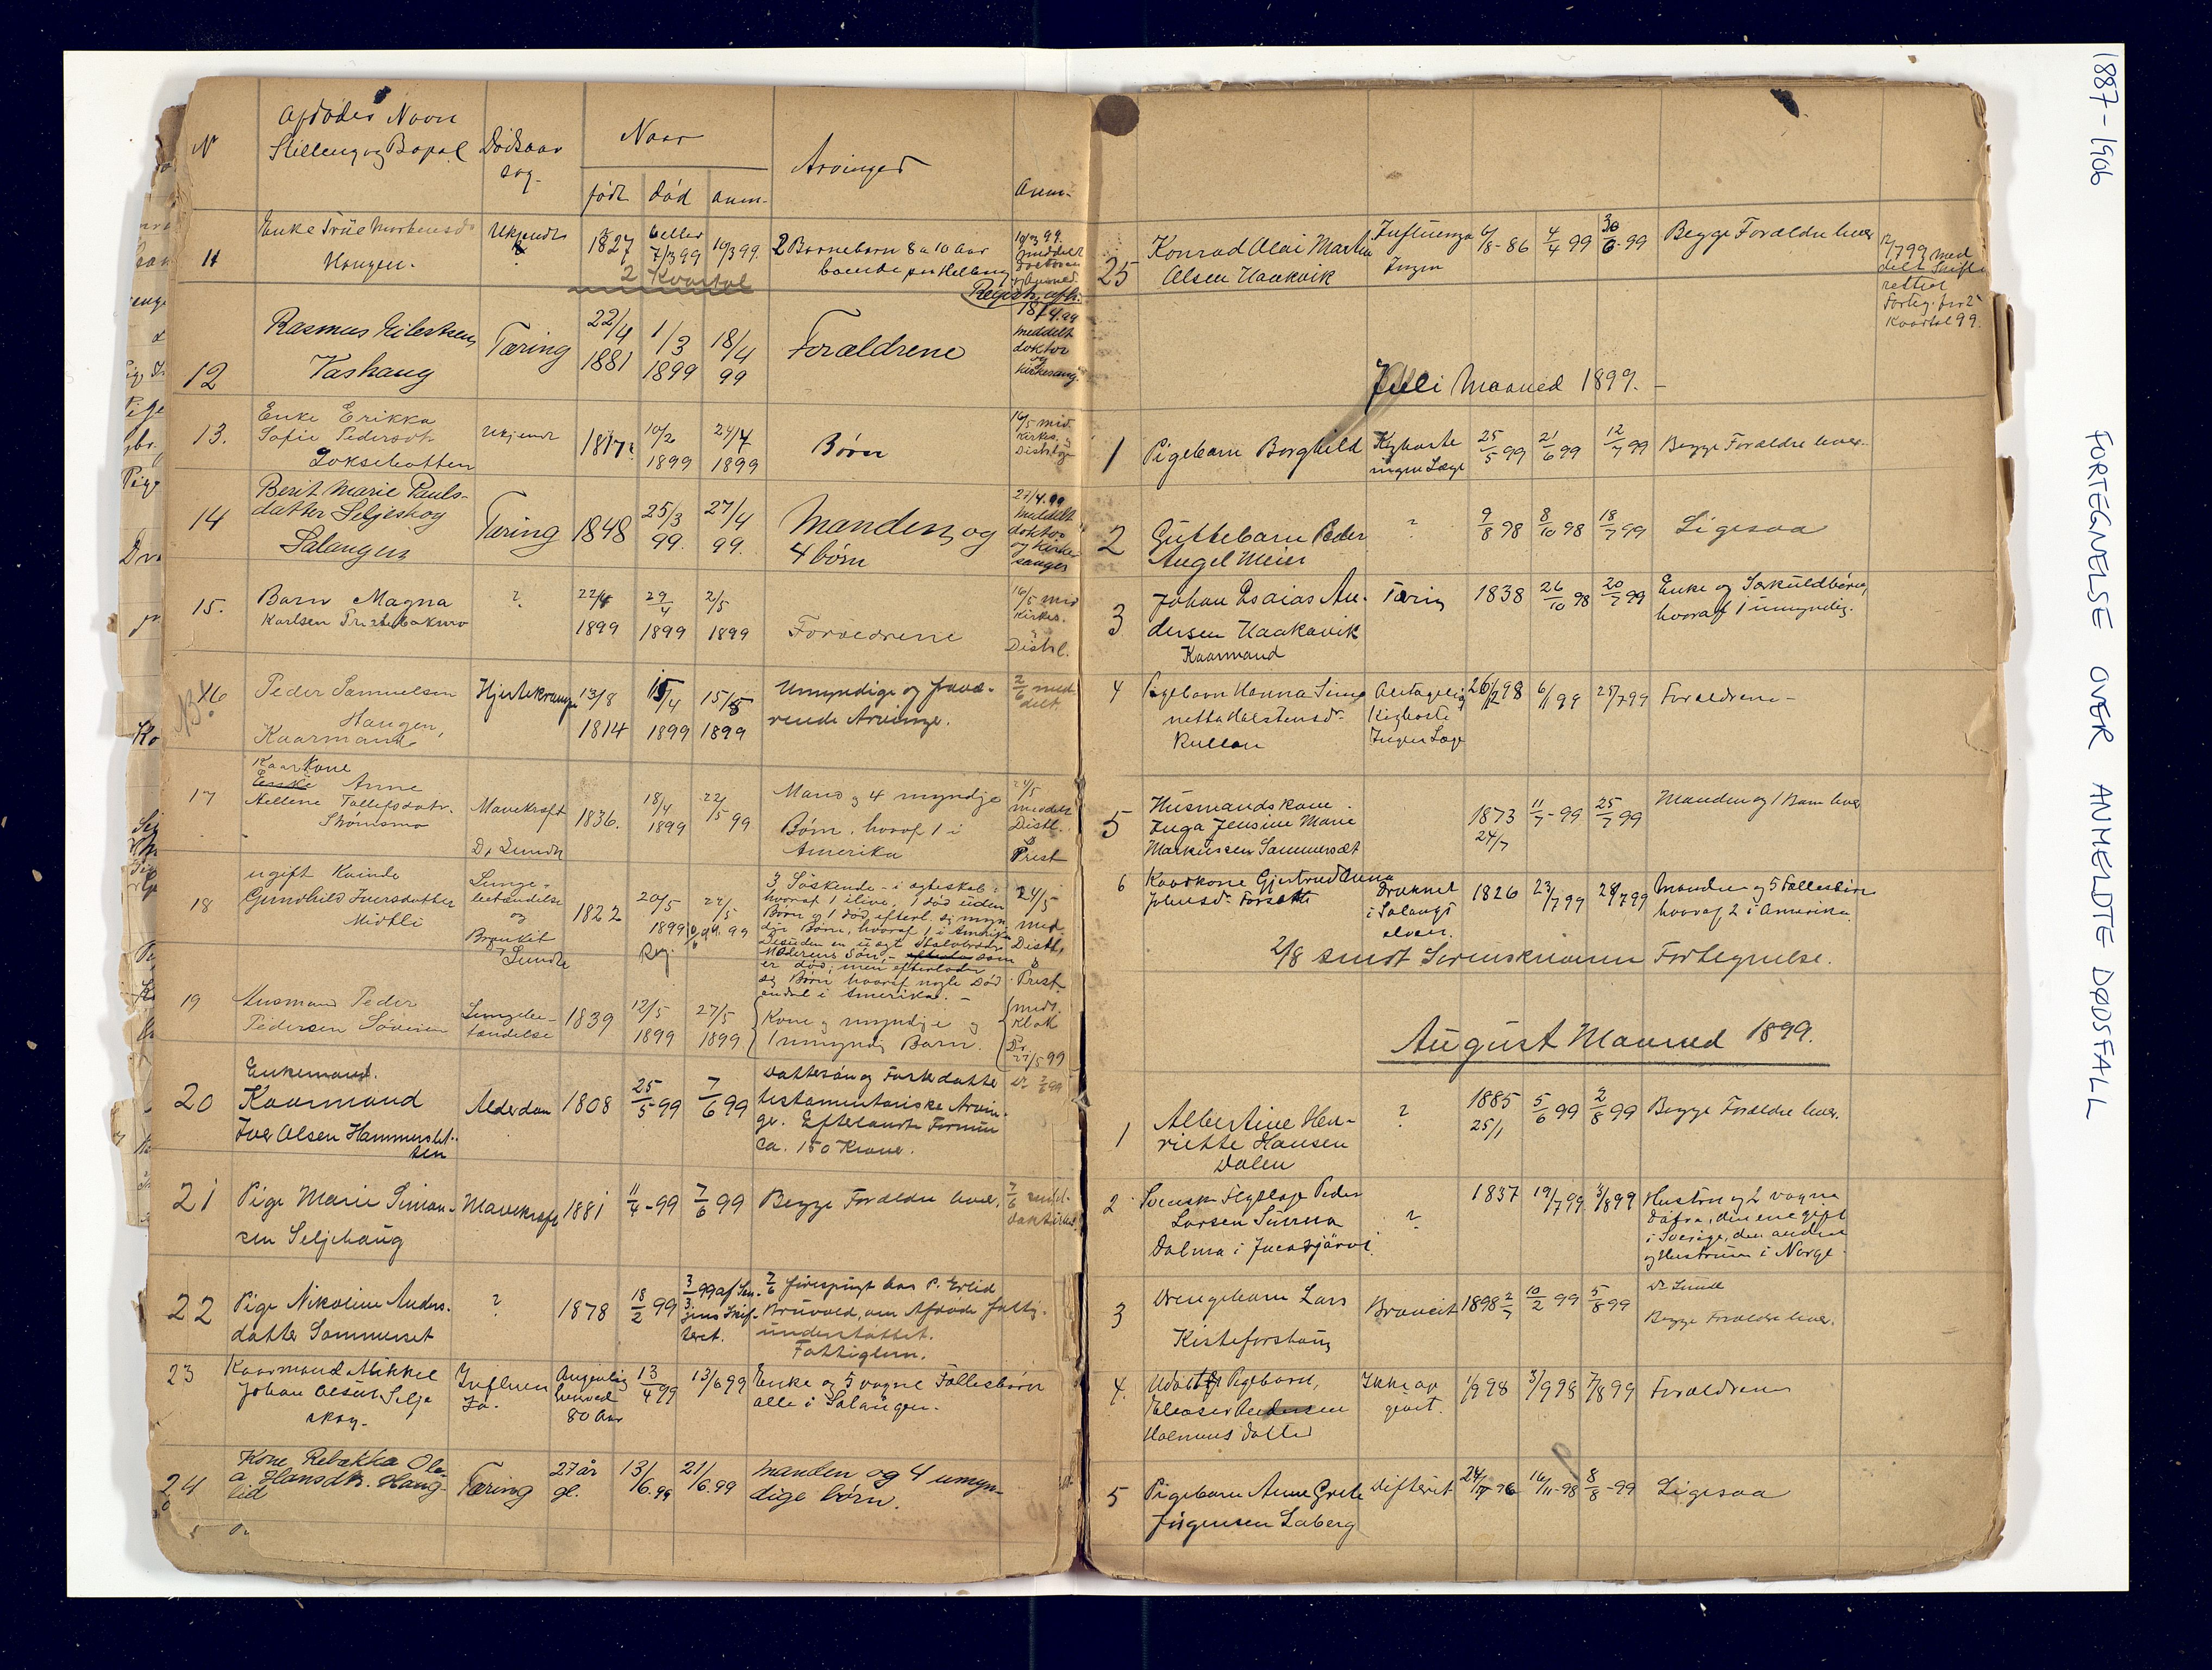 1887-1906 FORTEGNELSE OVER ANMELDTE DØDSFALL
N
Afdødes Navn
Stilling og Bopæl
Dødsaar
sag.
Naar
født
død
anm.
Arvinger
Anm.
11
Enke
Haugen.
Ukjendt
1827
6 eller
7/3 99
10/3 99.
2 Børnebørn 8 a 10 Aar
boende paa
10/3 99.
meddelt
2 Kvartal
Registr. afh.
12
Rasmus Eilertsen
Vashaug
Tæring
22/4
1881
1/3
1899
18/4
99
Forældrene
18/4.99
meddelt
doktor
og
kirkesang.
13.
Enke Erikka
Sofie Pedersdt.
Ukjendt
1817
10/2
1899
24/4
1899
Børn
16/5 med.
Kirkes.
14
Berit Marie Pauls-
datter Seljeskog
Salangen
Tæring
1848
25/3
99.
27/4
99.
Manden og
4 børn
27/4.99
meddelt
doktor
og kirke
sanger
15.
Barn Magna
Karlsen
?
22/4
1899
29/4
1899
2/5
1899
Forældrene
16/5 med
Kirkes.
Distl.
16
Peder Samuelsen
Haugen,
Kaarmand
Hjertekrampe
13/8
1814
15/4
1899
15/5
1899
Umyndige og fravæ-
rende Arvinge.
2/6 med
delt.
17
Kaarkone
Enke Anne
Hellene Tollefsdatr.
Strømsmo
Mavekræft
Dr Lund
1836.
18/4
1899
22/5 99
Mand og 4 myndje
Børn, hvoraf 1 i
Amerika
24/5
meddelt
Distl.
&
Prest
18
ugift Kvinde
Gundhild Iversdatter
Midtli
Lunge-
betændelse
og
1822
20/5
1899
22/5 99
3 Søskende - i ægteskab:
hvoraf 1 ilive, 1 død uden
Børn og 1 død, efterl. sig myn
dge Børn, hvoraf 1 i Amerika
Desuden en uægt Halvbroder
Moderens Søn, - som
er død, men efterlader
sig Børn hvoraf nogle død
endel i Amerika. -
24/5
med.
Distl.
&
Prest
19
Husmand Peder
Pedersen
Lungebe-
tændelse
1839
12/5
1899
27/5
1899
Kone og myndje og
1 umyndig Barn.
medd.
Klok
Dr.
27/5 99
20
Enkemand.
Kaarmand
Iver Olsen Hammerslet-
ten
Alderdom
1808
25/5 99
7/6 99
Dattersøn og Fosterdatter
testamentariske Arvin-
ger. Efterladte Formue
ca. 150 Kroner.
21
Pige Marie Simon-
sen Seljehaug
Mavekræft
1881
11/4-99
7/6 99
Begge Forældre lever.
22
Pige Nikoline Anders-
datter Sommerset
?
1878
18/2 99
3/3 99 af Søn-
2/6 forespurgt hos P. Erlid
Bruvold, om Afdøde fattig-
understøttet.
Fattiglem.
23
Kaarmand Mikkel
Johan Olsen Selje
skog.
Influen
za.
Angivelig
henved
80 Aar
13/4 99
13/6 99
Enke og 5 vogne Fællesbørn
alle i Salangen.
24
Kone Rebekka Ole-
a Hansdtr. Haug-
lid
Tæring
27 år
gl.
13/6.99
21/6.99
manden og 4 umyn-
dige børn.
25
Konrad Olai Martin
Olsen Haakvik
Influenza
Ingen
6/8-86
4/4 99
30/6-99
Begge Forældre lever
12/7 99 med
delt Skifte
retten
Forteg. for 2
Kvartal 99.
Juli Maaned 1899. -
1
Pigebarn Borghild
Kighoste
ingen Læge
25/5 99
21/6 99
12/7 99
Begge Forældre lever.
2
Guttebarn Peder
Angel Meier
?
9/8 98
8/10 98
18/7 99
Ligesaa
3
Johan Esaias An-
dersen Haakavik
Kaarmand
Tæring
1838
26/10 98
20/7 99
Enke og Særkuldbørn,
hvoraf 1 umyndig.
4
Pigebarn Hanna Simo
netta Halstensdr.
Antagelig
Kighoste
Ingen Læge
26/12 98
6/1 99
25/7 99
Forældrene -
5
Husmandskone.
Inga Jensine Marie
Markussen Sommersæt
1873
24/7
11/7-99
25/7 99
Manden og 1 Barn lever
6
Kaarkone Gjertrud Anna
Johnsdr. Forseth
Druknet
i Salangs
elven.
1826
23/7 99
28/7 99
Manden og 5 Fællesbørn
hvoraf 2 i Amerika
2/8 sendt Sorenskriveren Fortegnelse.
August Maaned 1899.
1
Albertine Hen-
riette Hansen
Dalen
?
1885
25/1
5/6 99
2/8 99
Begge Forældre lever.
2
Svensk Flytlap Peder
Larsen Sunna
Dalma i Jucasjärvi.
?
1837
19/7 99
3/8 99
Hustru og 2 vogne
Døtre, den ene gift
i Sverige, den anden
og Hustruen i Norge
3
Drengebarn Lars
Kisteforshaug
1898 2/7
10/2 99
5/8 99
Dr Lund
Begge Forældre lever.
4.
Udøbt Pigebarn,
Eleaser Andersen
Datter
Ikke op
givet.
1/9 98
3/9 98
7/8 99
Forældrene
5
Pigebarn Anne Grete
Jørgensen Laberg
Difterit
16/11-98
8/8-99
Ligesaa